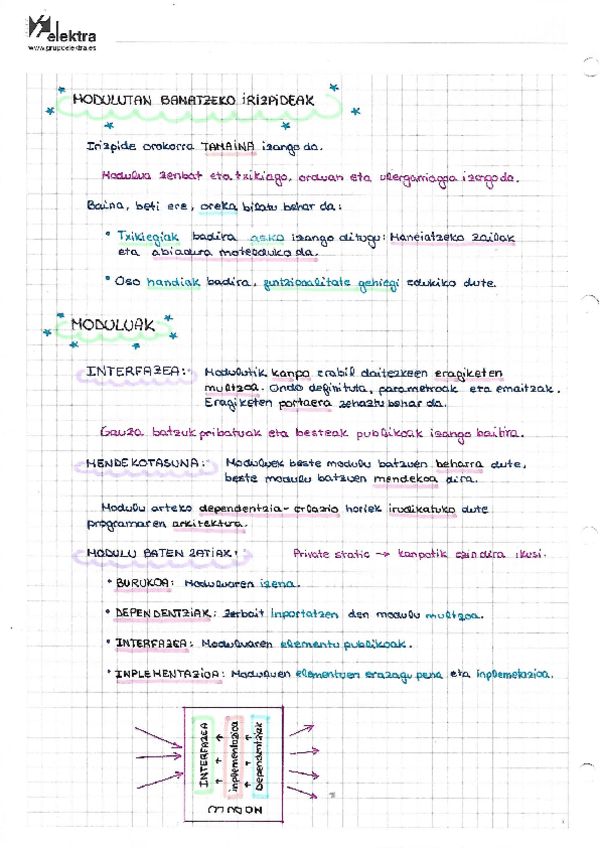 elektra
www.grupoelektra.es
MODULUTAN BANATZEKO IRIZPIDEAK
Irizpide orokorra TAMAINA izango da.
Modulua zenbat eta txikiago, orduan eta ulergarriagoa izango da.
Baina, beti ere, oreka bilatu behar da:
* Txikiegiak badira asko izango ditugu: Maneiatzeko zailak
eta abiadura motelduko da.
* Oso handiak badira, funtzionalitate gehiegi edukiko dute.
MODULUAK
INTERFAZEA: Modulutik kanpo erabil daitezkeen eragiketen
multzoa. Ondo definituta, parametroak eta emaitzak.
Eragiketen portaera zehaztu behar da.
Gauza batzuk pribatuak eta besteak publikoak izango baitira.
MENDEKOTASUNA: Moduluek beste modulu batzuen beharra dute,
beste modulu batzuen mendekoa dira.
Modulu arteko dependentzia-erlazio horiek irudikatuko dute
programaren arkitektura.
MODULU BATEN ZATIAK: Private static → kanpotik ezin dira ikusi.
* BURUKOA: Moduluaren izena.
* DEPENDENTZIAK: Zerbait inportatzen den modulu multzoa.
* INTERFAZEA: Moduluaren elementu publikoak.
* INPLEMENTAZIOA: Moduluen elementuen erazagupena eta inplemetazioa.
INTERFAZEA
inplementazioa
Dependentziak